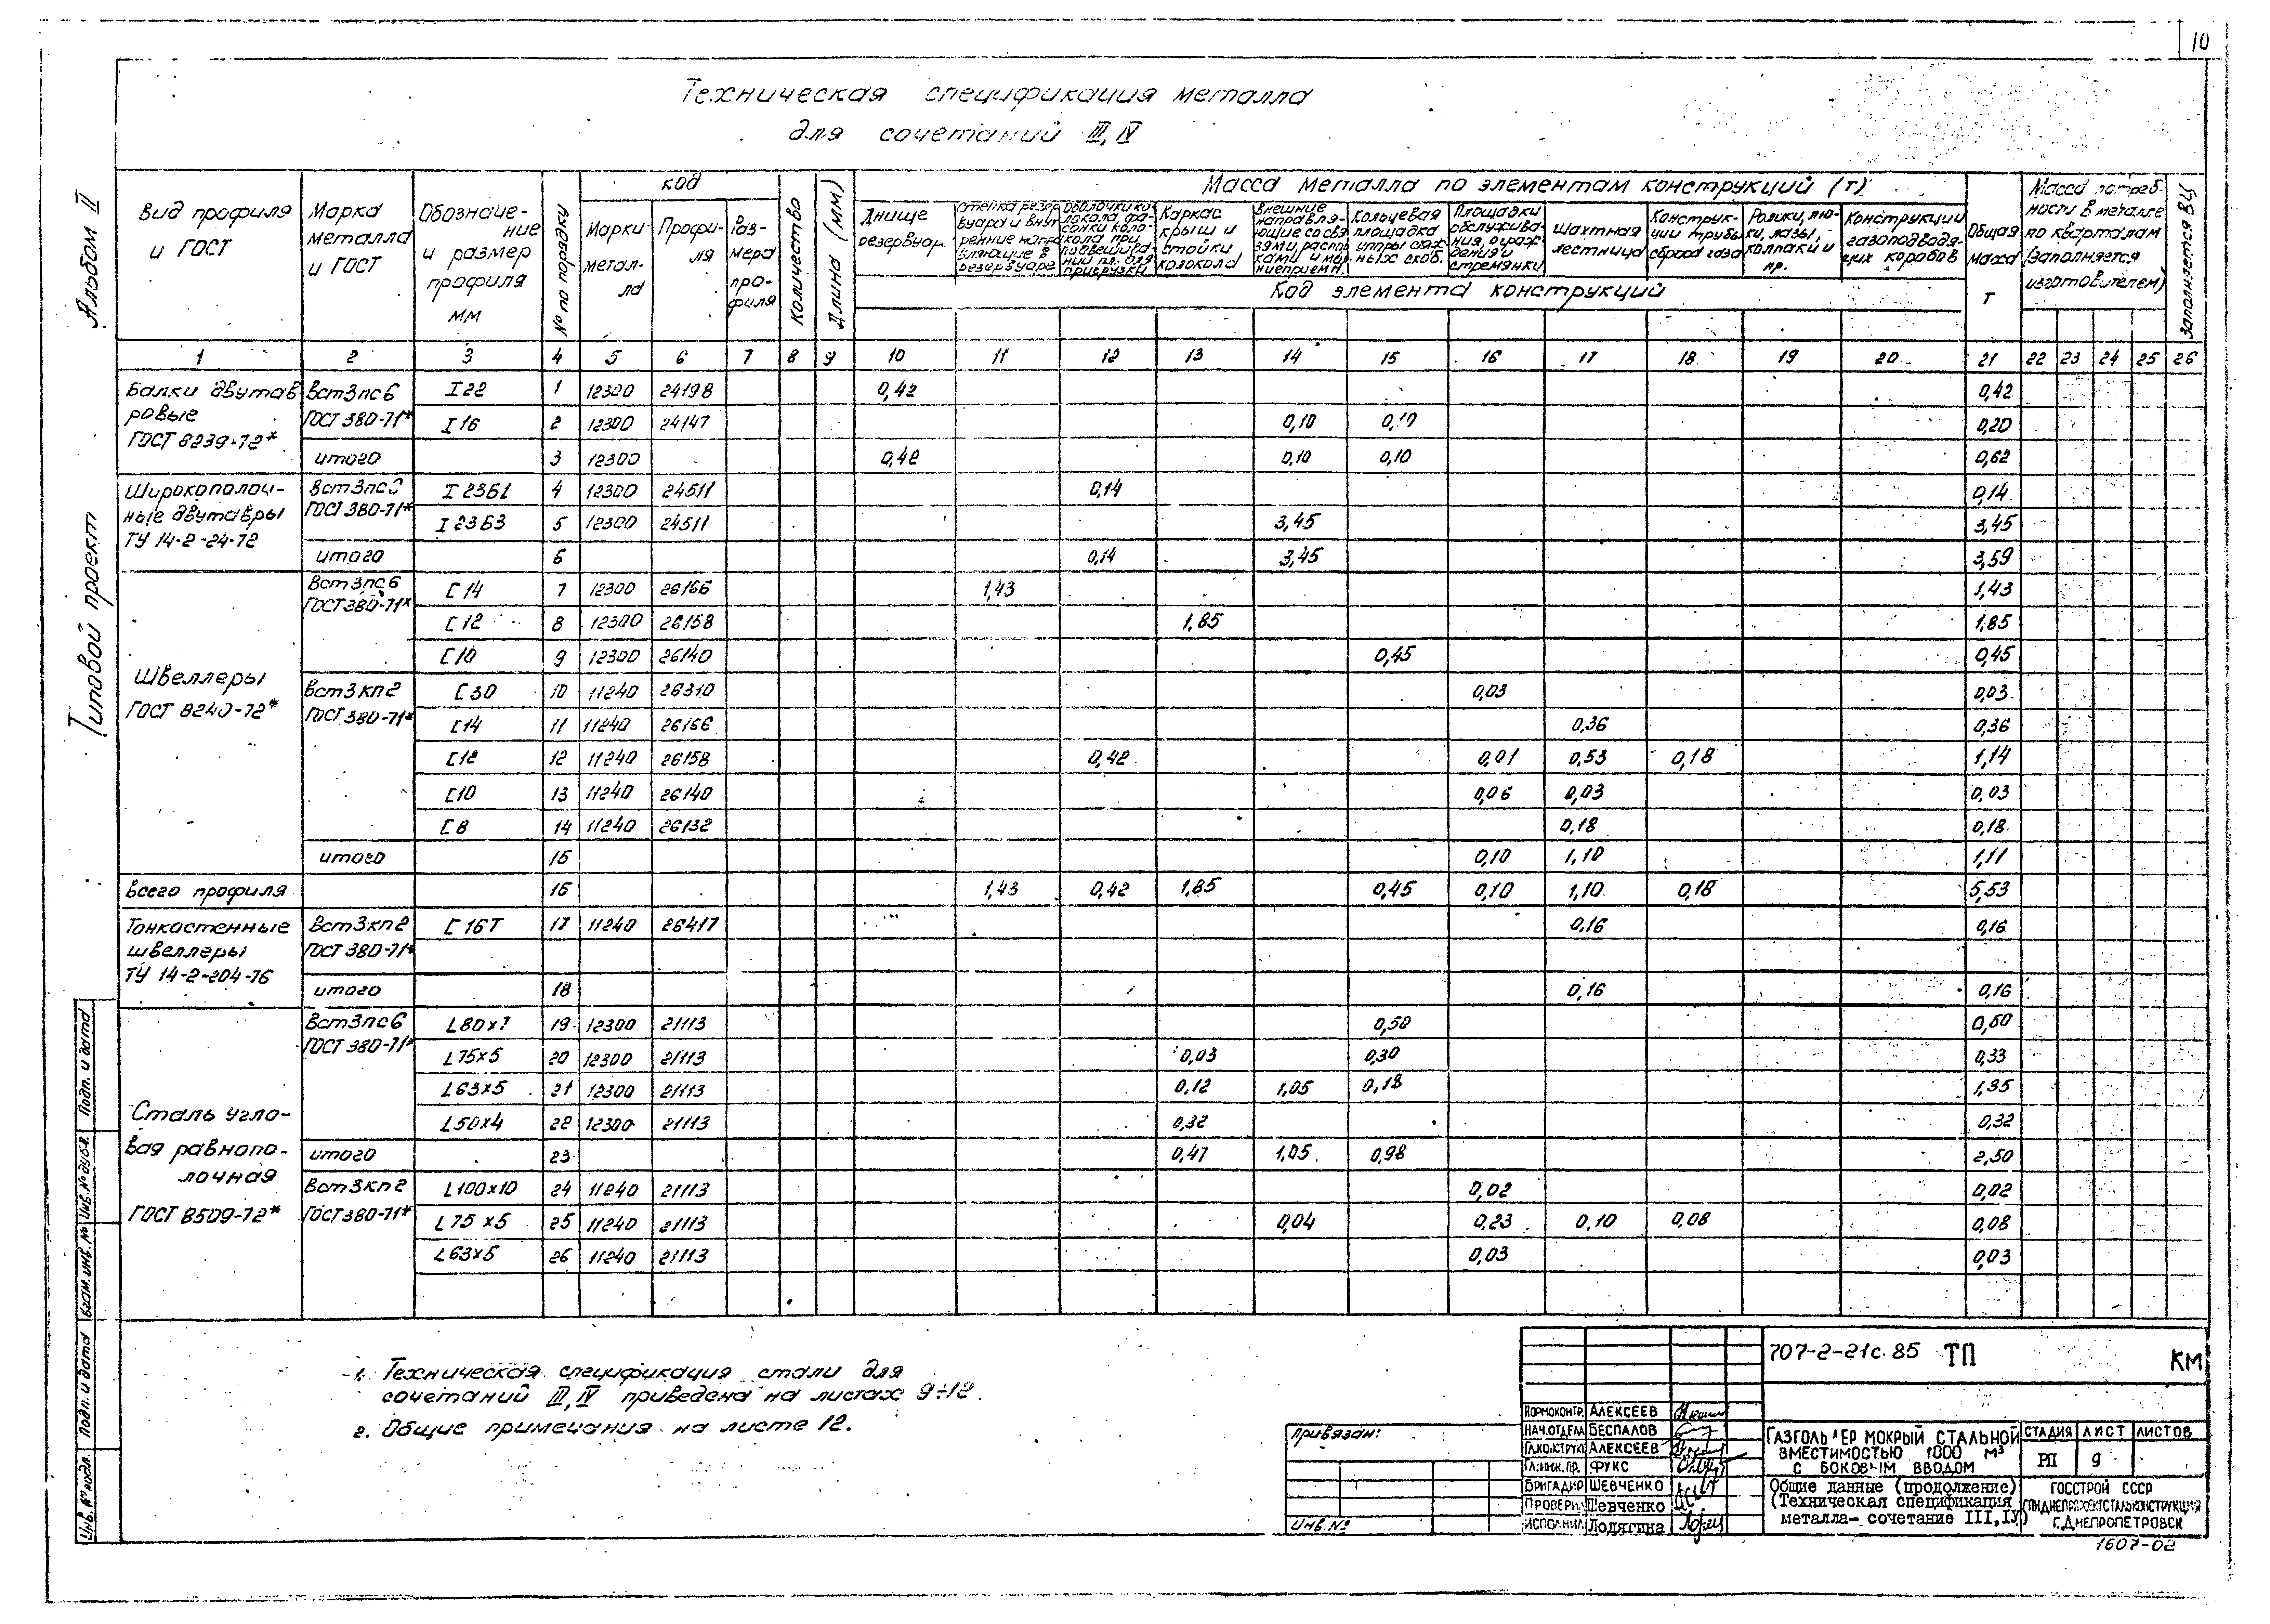 10
Техническая спецификация металла
для сочетаний III, IV
Альбом II
Типовой проект
Вид профиля и ГОСТ
Марка металла и ГОСТ
Обозначение и размер профиля мм
№ по порядку
код
Марки метал-ла
Профи-ля
Раз-мера про-филя
Количество
Длина (мм)
Масса металла по элементам конструкций (т)
Днище резервуар.
Стенка резер вуара и внут ренние напра вляющие в резервуаре
Каркас крыш и стойки колокола
Кольцевая площадка
Площадки обслужива-ния, ограж дения и стремянки
Шахтная лестница
Конструк-ции трубы сброса газа
Ролики, лю-ки, лазы, колпаки и пр.
Конструкции газоподводя-щих коробов
Код элемента конструкций
Общая масса т
Масса потреб. ности в металле по кварталам (заполняется изготовителем)
Заполняется ВЦ
1 2 3 4 5 6 7 8 9 10 11 12 13 14 15 16 17 18 19 20 21 22 23 24 25 26
Балки двутав ровые ГОСТ 8239-72*
Вст3пс6 ГОСТ 380-71*
I 22 1 12300 24198 0,42 0,42
I 16 2 12300 24147 0,10 0,20
итого 3 12300 0,42 0,10 0,10 0,62
Широкополоч-ные двутавры ТУ 14-2-24-72
ГОСТ 380-71*
I 23Б1 4 12300 24511 0,14 0,14
I 23Б3 5 12300 24511 3,45 3,45
итого 6 0,14 3,45 3,59
Швеллеры ГОСТ 8240-72*
Вст3пс6 ГОСТ 380-71*
[ 14 7 12300 26166 1,43 1,43
[ 12 8 12300 26158 1,85 1,85
[ 10 9 12300 26140 0,45 0,45
Вст3кп2 ГОСТ 380-71*
[ 30 10 11240 26310 0,03 0,03
[ 14 11 11240 26166 0,36 0,36
[ 12 12 11240 26158 0,42 0,01 0,53 0,18 1,14
[ 10 13 11240 26140 0,06 0,03 0,03
[ 8 14 11240 26132 0,18 0,18
итого 15 0,10 1,10 1,11
Всего профиля 16 1,43 0,42 1,85 0,45 0,10 1,10 0,18 5,53
Тонкастенные швеллеры ТУ 14-2-204-76
Вст3кп2 ГОСТ 380-71*
[ 16Т 17 11240 26417 0,16 0,16
итого 18 0,16 0,16
Сталь угло-вая равнопо-лочная ГОСТ 8509-72*
Вст3пс6 ГОСТ 380-71*
L 80×7 19 12300 21113 0,50 0,50
L 75×5 20 12300 21113 0,03 0,30 0,33
L 63×5 21 12300 21113 0,12 1,05 0,18 1,35
L 50×4 22 12300 21113 0,32 0,32
итого 23 0,47 1,05 0,98 2,50
Вст3кп2 ГОСТ 380-71*
L 100×10 24 11240 21113 0,02 0,02
L 75×5 25 11240 21113 0,04 0,23 0,10 0,08 0,08
L 63×5 26 11240 21113 0,03 0,03
1. Техническая спецификация стали для
сочетаний III, IV приведена на листах 9÷12.
2. Общие примечания на листе 12.
Привязан:
Инв. №
707-2-21с.85 ТП КМ
Нормоконтр. Алексеев
Нач. отдела Беспалов
Гл. конструкт. Алексеев
Гл. инж. пр. Фукс
Бригадир Шевченко
Провери Шевченко
Исполнил Лодягина
Газголь ер мокрый стальной
вместимостью 1000 м³
с боковым вводом
Общие данные (продолжение)
(Техническая спецификация
металла- сочетание III, IV)
Стадия Лист Листов
РП 9
Госстрой СССР
г. Днепропетровск
1607-02
Инв. № подл. Подп. и дата Взам. инв. № Инв. № дубл. Подп. и дата